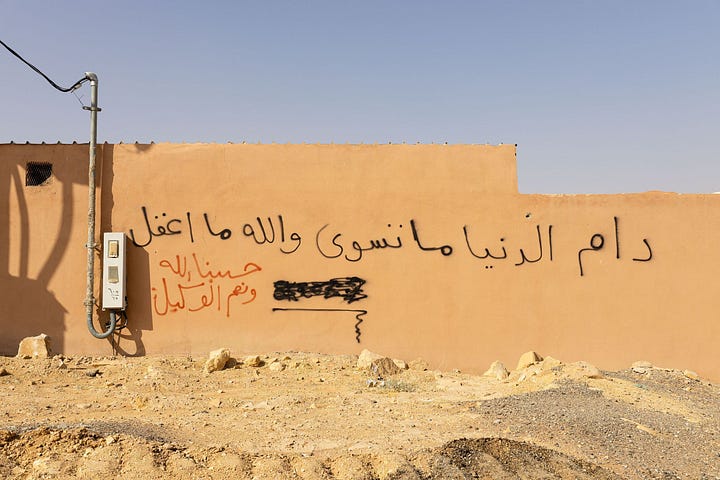 دام الدنيا ما تسوى والله ما اعقل
حسبنا الله
ونعم الوكيل